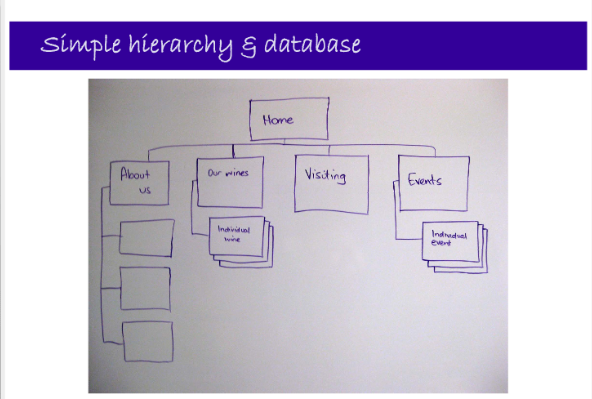 Simple hierarchy & database
Home
About
us
Our wines
Visiting
Events
Individual
wine
Individual
event